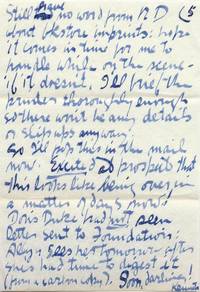 Still no word from RD (5
about bkstore imprints: hope
it comes in time for me to
handle while on the scene -
if it doesn't, I'll brief the
printer thoroughly enough
so there won't be any details
or slipups anyway.
So I'll pop this in the mail
now. Excited at prospect that
this looks like being over in
a matter of days now!
Doris Duke had not seen
letter sent to Foundation:
Aly sees her tomorrow after
she's had time to digest it
(from a carbon copy). Soon, darling!